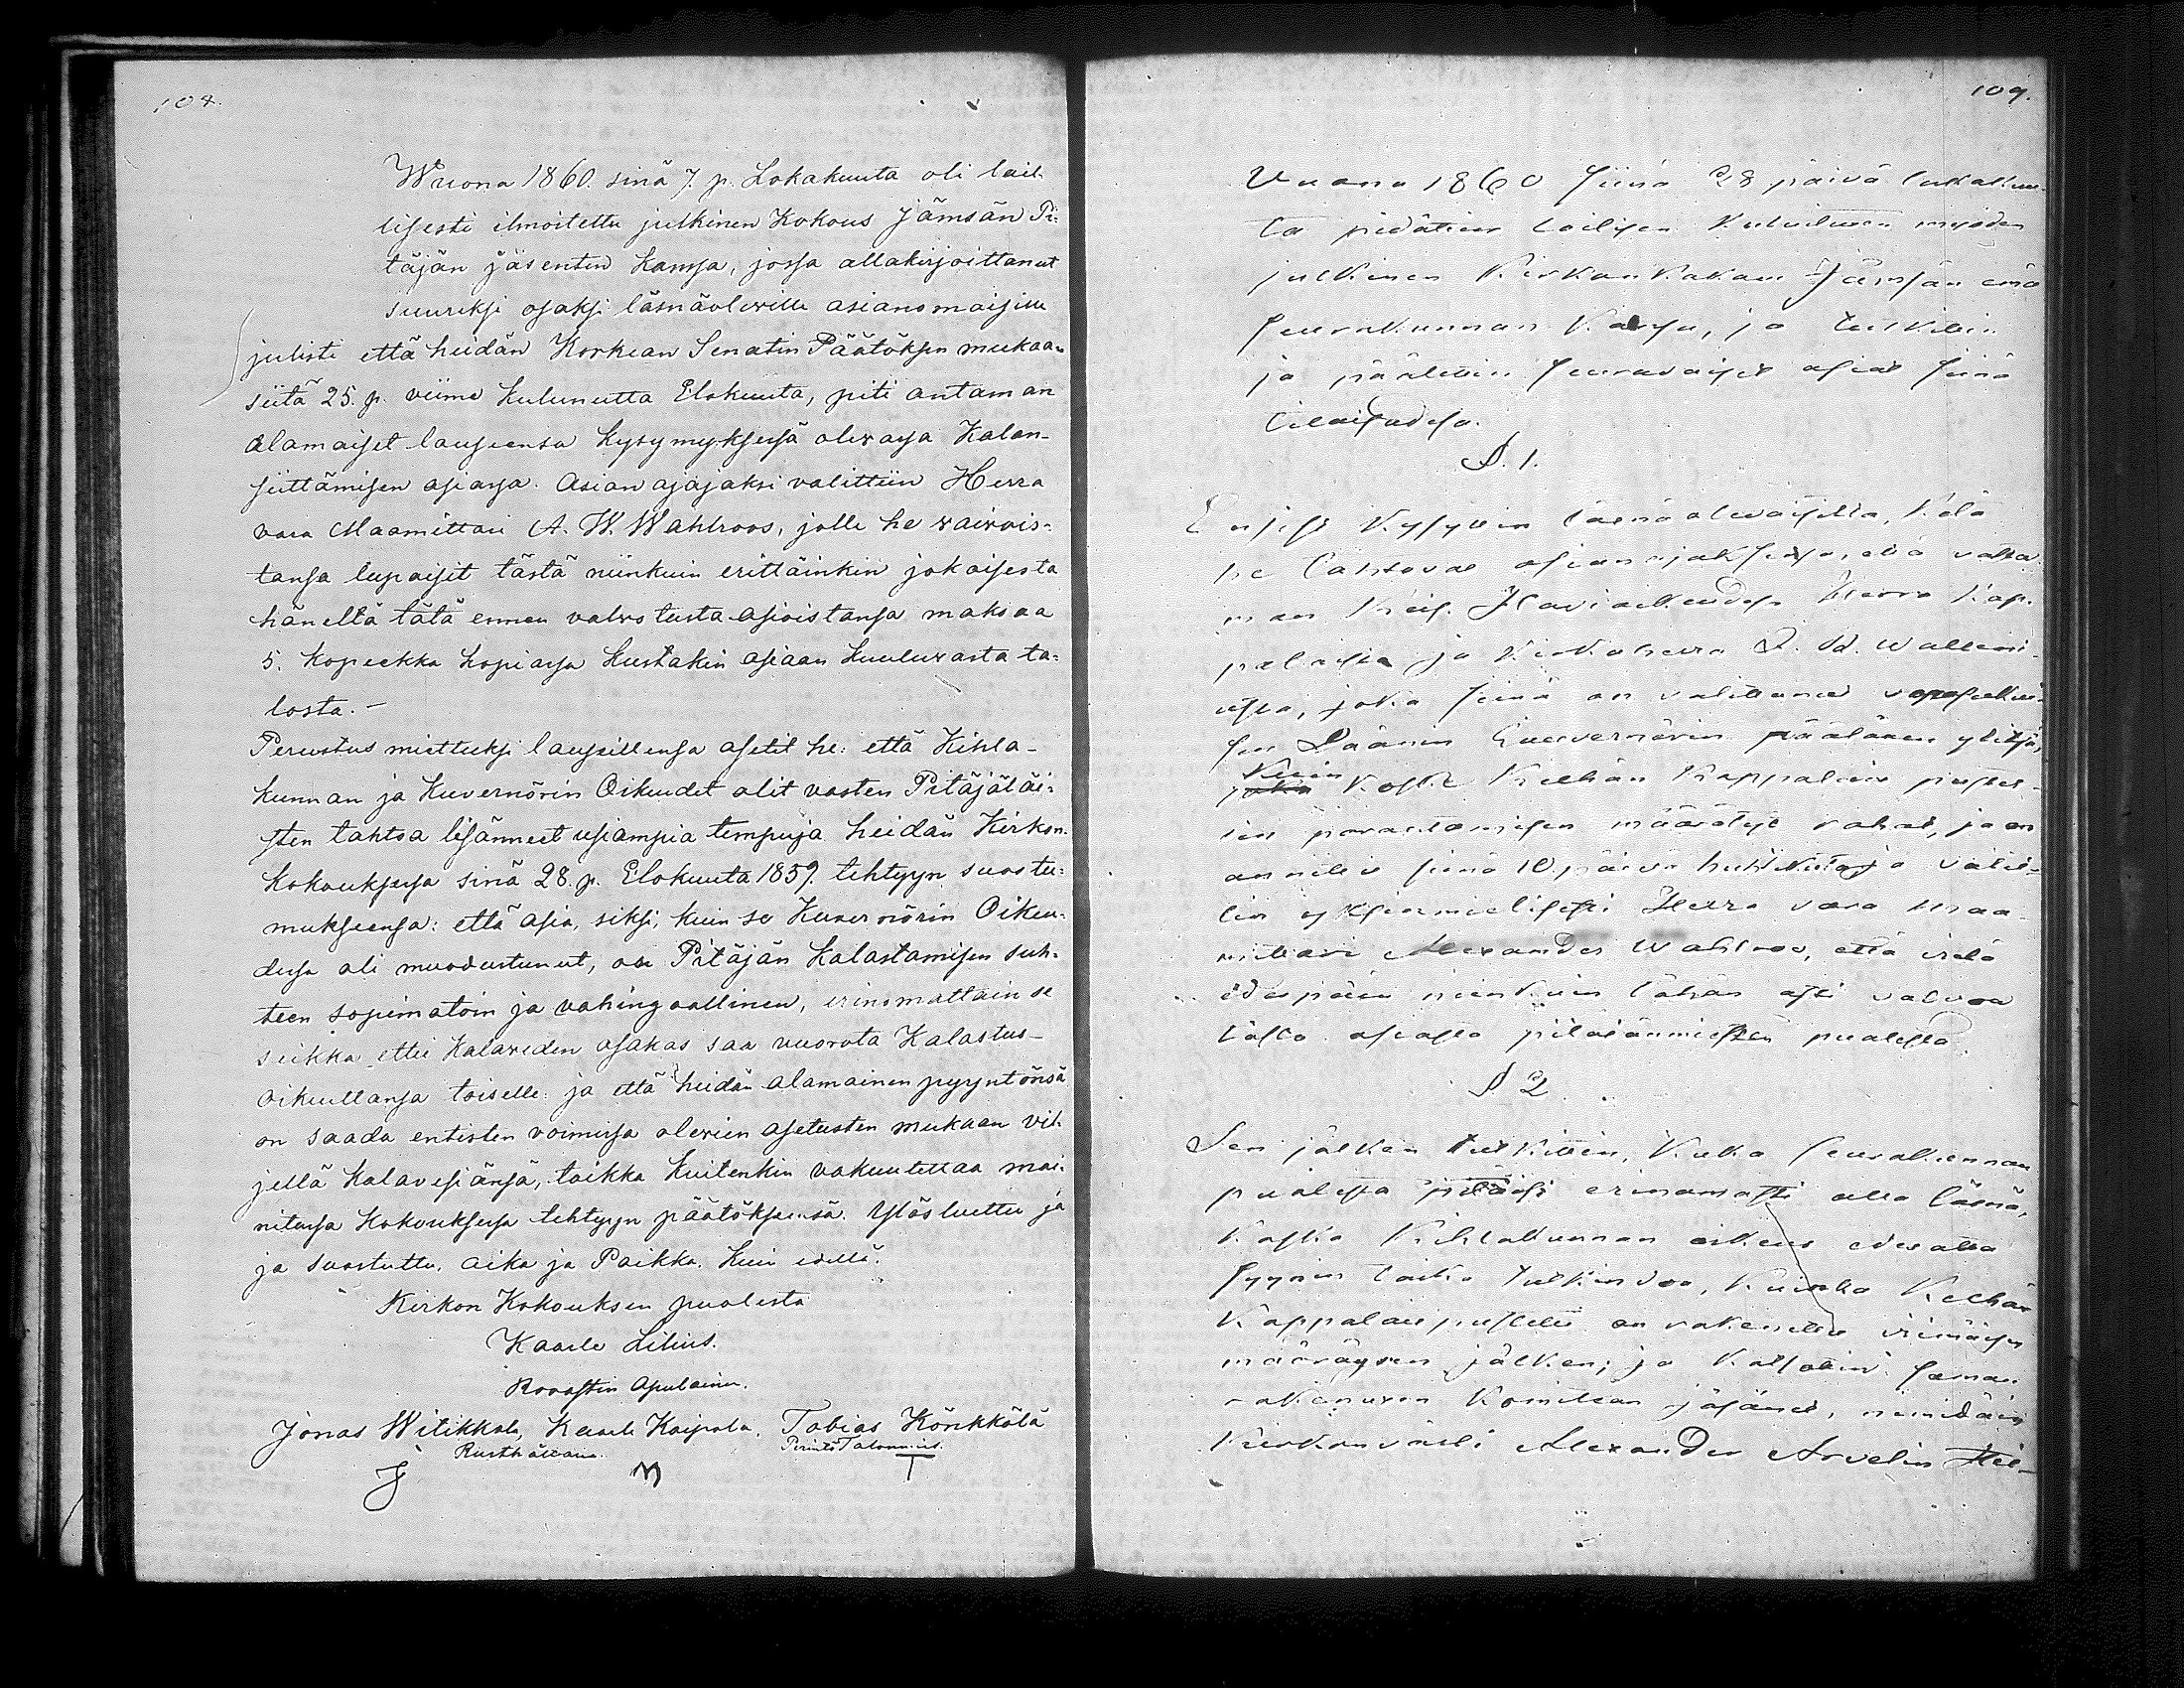 108.
Wuona 1860. sinä 7. p. Lokakuuta oli lail-
lisesti ilmoitettu julkinen Kokous Jämsän Pi-
täjän jäsenten kanssa, jossa allakirjoittanut
suureksi osaksi läsnäoleville asianomaisille
julisti että heidän Korkean Senatin Päätöksen mukaan
siitä 25. p. viime kulunutta Elokuuta, piti antaman
alamaiset lauseensa kysymyksessä olevassa Kalan-
siittämisen asiassa. Asian ajajaksi valittiin Herra
vara Maamittari A. W. Wahlroos, jolle he vaivois-
tansa lupaisit tästä niinkuin erittäinkin jokaisesta
häneltä tätä ennen valvotusta asioistansa maksaa
5. kopeekka hopiassa kustakin asiaan kuuluvasta ta-
losta.-
Perustus mietteeksi lauseillensa asetit he: että Kihla-
kunnan ja Kuvernörin Oikeudet olit vasten Pitäjäläi-
sten tahtoa lisänneet useampia tempuja heidän Kirkon-
kokouksessa sinä 28. p. Elokuuta 1859. tehtyyn suostu-
mukseensa: että asia, siksi, kuin se Kuvernörin Oikeu-
dessa oli muodustunut, on Pitäjän Kalastamisen suh-
teen sopimatoin ja vahingoallinen, erinomattain se
seikka ettei kalaveden osakas saa vuorota Kalastus-
oikeuttansa toiselle: ja että heidän alamainen pyyntönsä
on saada entisten voimissa olevien asetusten mukaan vil-
jellä kalavesiänsä, taikka kuitenkin vakuutettaa mai-
nitussa Kokouksessa tehtyyn päätökseensä. Ylösluettu ja
ja suostuttu, aika ja Paikka, kuin edellä.
Kirkon Kokouksen puolesta
Kaarle Lilius.
Rovastin Apulainen.
Jonas Witikkala, Kaarle Kaipola, Tobias Könkkölä
Rusthållari. Perintö Talonmies.
109.
Vuonna 1860 siinä 28 päivä lokakuu-
ta pidätiin laillisen kuulutuksen myöden
julkinen Kirkonkokous Jämsän emä
seurakunnan kanssa, ja tutkittiin
ja päätettiin seuraavaiset asiat siinä
tilaisudessa.
§. 1.
Ensist kysyttiin läsnäolevaisilta, kelä
he tahtovat asianajaksensa, että valvo-
man Keis. Hoviokeudessa Herra Kap-
palaista ja Kirkoherra
ussa, joka siinä on valittanut
sen Läänin Guvernörin päätöksen ylitse,
kuin koski Kuhan Kappalais pustel-
lin parantamisen määrätyt rahat, ja on
annettu siinä 10 päivä huhtikuta ja valit-
tin yksimielisesti Herra vara maa-
mittari Alexander Wahlroos, että vielä
edespäin niinkuin tähän asti valvoa
tässä asiassa pitäjänmiesten puolesta.
§ 2
Sen jälken tutkittiin, kuka seurakunnan
puolesta pitäisi erinomasti olla läsnä,
koska Kihlakunnan oikeus
syynin kautta tutkindoo, kuinka Kuhan
Kappalaispustelli on rakennettu viimäisen
määräyksen jälken; ja katsottiin saman
rakenuxen Komitean jäsänet, nimittäin
Kirkonväärti Alexander Arvelin